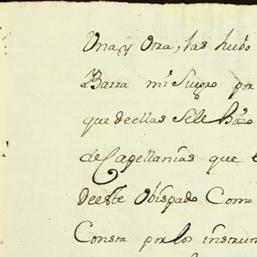 Una y Otra, las hubo
Barra mi Suegro por
que deellas Sele hizo
de Capellanias que
deeste Obispado Como
Consta por los instrum